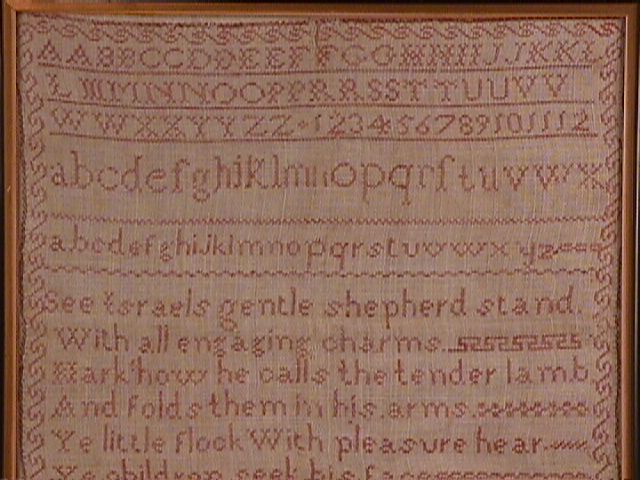 AABBCCDDEEFFGGHHIIJJKKL
LMMNNOOPPRRSSTTUUVV
WWXXYYZZ 123456789101112
abcdefghijklmnopqrſtuvwx
abcdefghijklmnopqrstuvwxyz
See Israels gentle shepherd stand.
With all engaging charms
Hark how he calls the tender lamb
And folds them in his arms
Ye little flock With pleasure hear
Ye children seek his face